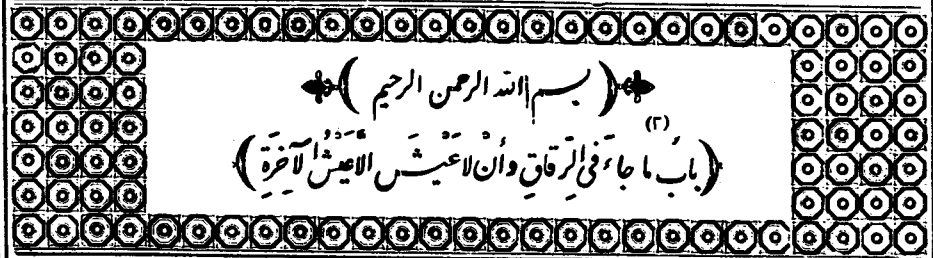 ﴿ بسم الله الرحمن الرحيم ﴾
(٢)
﴿ بابُ ما جاءَ فى الرِّقاقِ وأنْ لا عَيْشَ الَّا عَيْشُ الآخِرَةِ ﴾